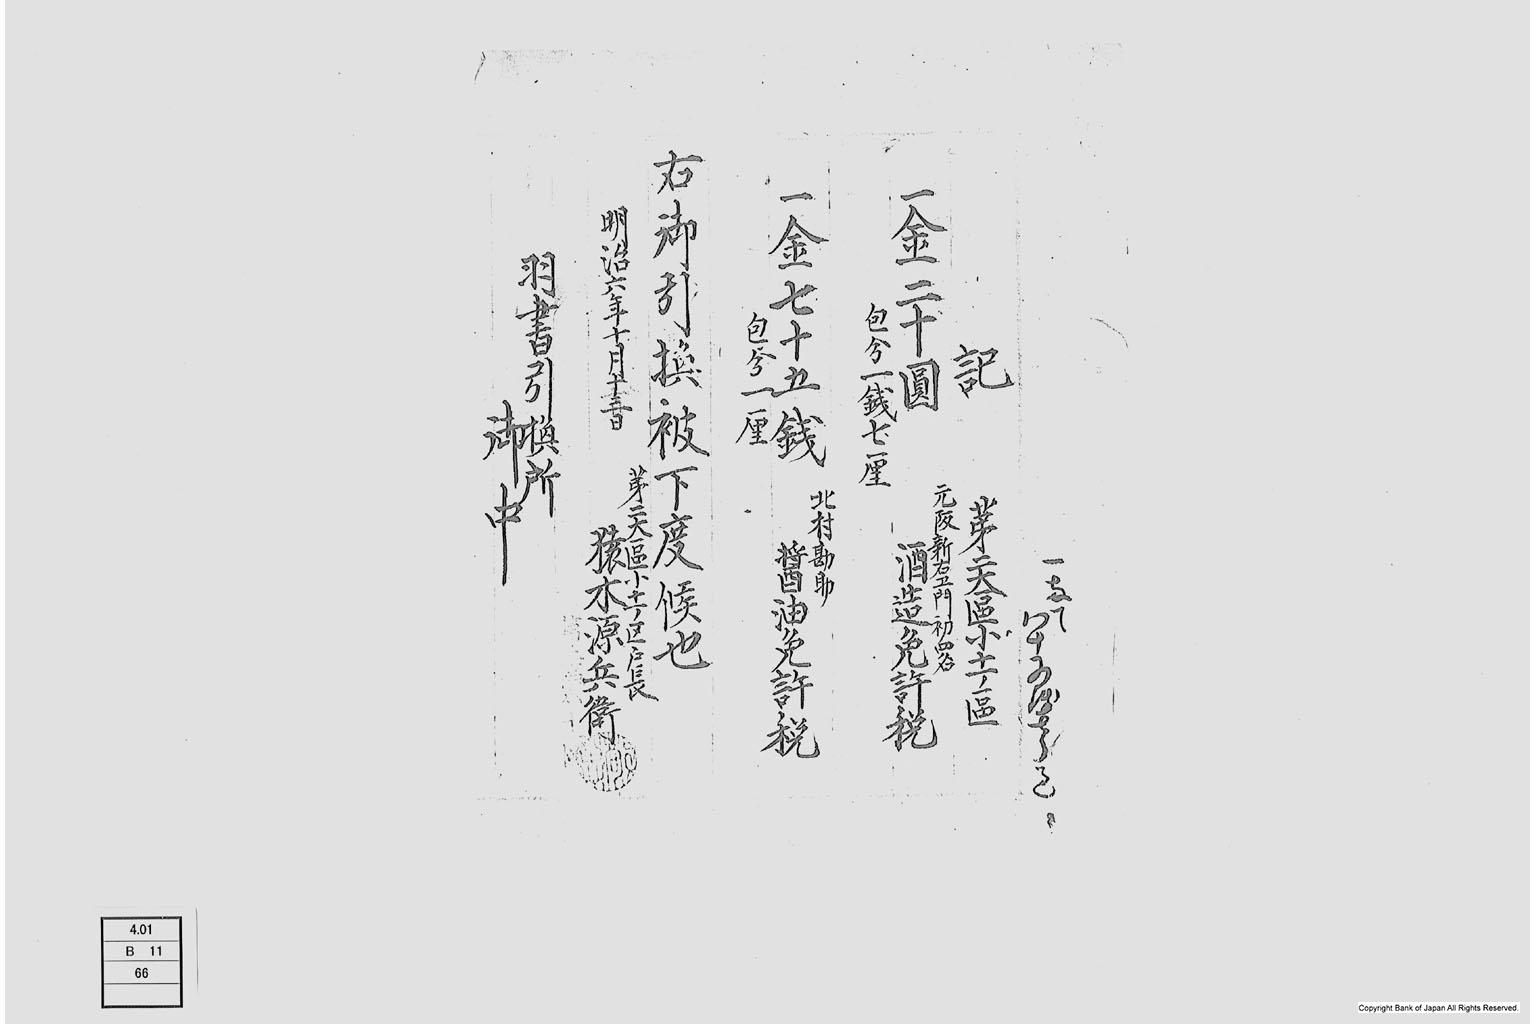 記
第二大區小十一ノ區
一金二十圓
元阪新右卫門初四名
酒造免許税
包分一銭七厘
一金七十五銭
北村勘助
醤油免許税
包分一厘
右御引換被下度候也
明治六年十月十三日
第二大區小十一ノ区戸長
猿木源兵衛
羽書引換所
御中
4.01
B 11
66
Copyright Bank of Japan All Rights Reserved.